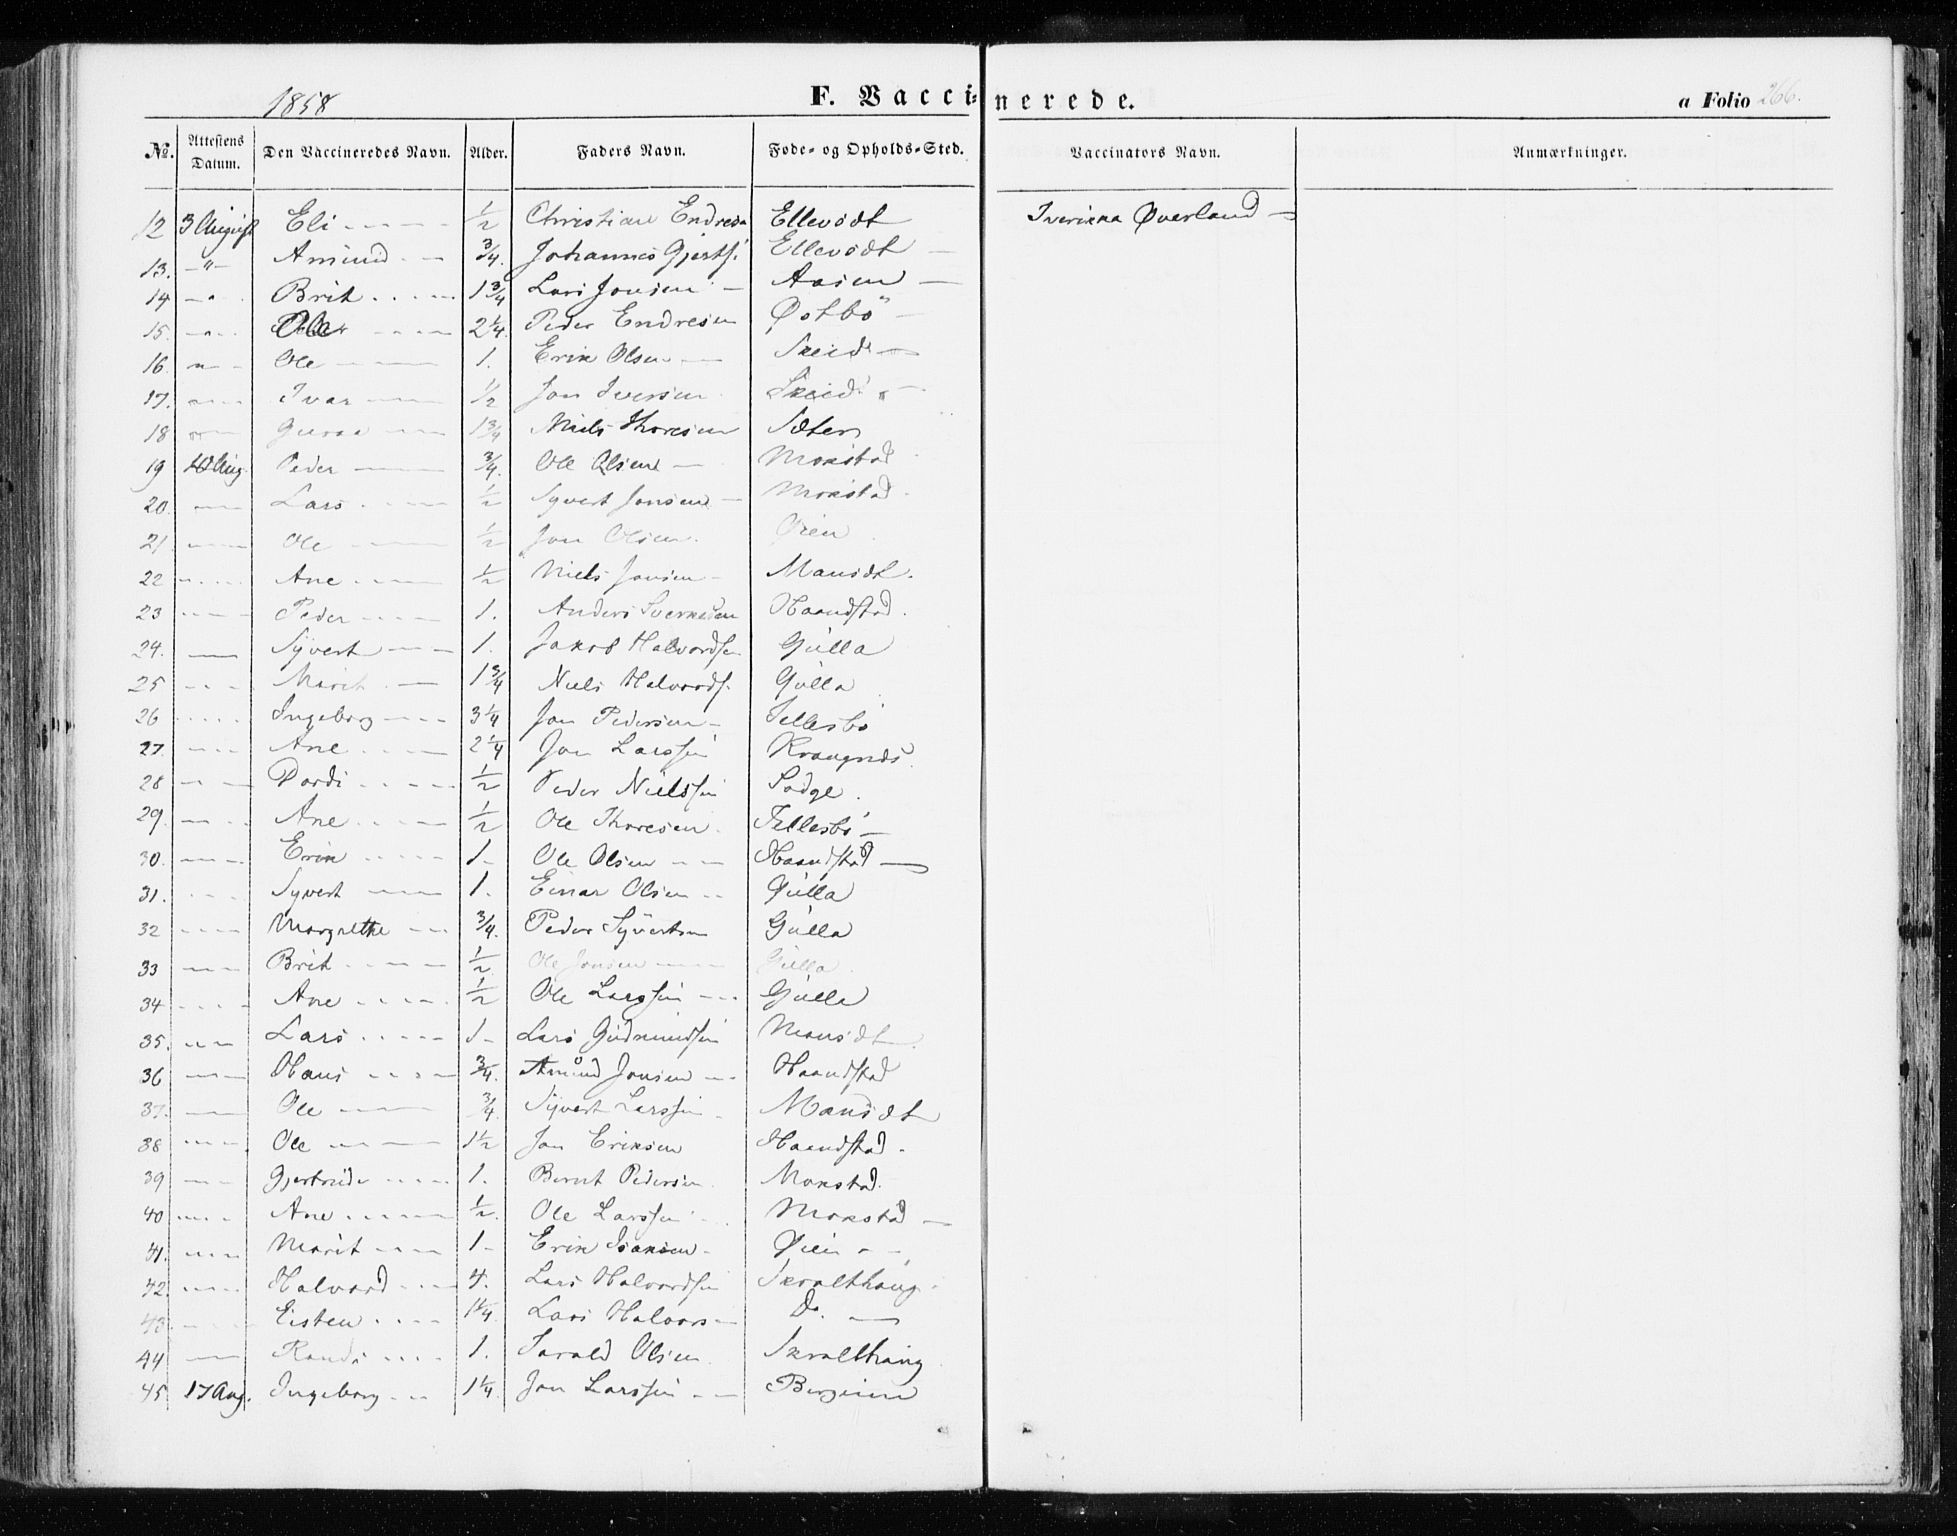 1858 F. Vaccinerede. a Folio 266.
No. Attestens Datum. Den Vaccineredes Navn. Alder. Faders Navn. Føde- og Opholds-Sted. Vaccinators Navn. Anmærkninger.
12 3 August Eli 1/2 Christian Endres Ellevødt Överland
13. -"- Amund 3/4. Johannes Gjerts. Ellevødt
14 -"- Brit 1 3/4 Lars Jonsen Aasen
15. -"- Ole 2 1/4. Peder Endresen Østbö
16. " Ole 1. Erik Olsen Skeid
17. Ivar 1/2 Jon Iversen Skeid
18 Guroe 1 3/4 Niels Thoresen Sæter
19 10 Aug. Peder 3/4. Ole Olsen Mokstad
20. Lars 1/2 Syvert Jonsen Mokstad
21 Ole 1/2 Jon Olsen Øien
22 Ane 1/2 Niels Jonsen Mansæt.
23 Peder 1. Anders Sverkesen Haandstad.
24. Syvert 1. Jakob Halvordsen Gulla
25 Marit 1 3/4 Niels Halvords. Gulla
26 Ingeborg 3 1/4 Jon Pedersen Jellesbö
27. Ane 2 1/4 Jon Larssen
28 Dordi 1/2 Peder Nielssen Sodge.
29. Ane 1/2 Ole Thoresen Fellesbö
30. Erik 1 Ole Olsen Haandstad
31. Syvert 1. Einar Olsen Gulla
32 Margrethe 3/4. Peder Syvertsen Gulla
33 Brit 1/2. Ole Jonsen Gulla
34 Ane 1/2 Ole Larssen Gulla
35. Lars 1 Lars Gudmundsen Mansæt
36 Hans 3/4. Amund Jonsen Haandstad
37. Ole 3/4. Syvert Larssen Mansæt
38 Ole 1 1/2 Jon Eriksen Haandstad.
39 Gjertrude 1. Bernt Pedersen Mokstad.
40 Ane 1/2. Ole Larssen Mokstad
41. Marit 1 Erik Isaksen Øien
42. Halvard 4. Lars Halvordsen Skralthaug
43 Eisten 1 1/4. Lars Halvors Do.
44 Randi 1. Harald Olsen Skralthaug
45 17 Aug. Ingeborg 1 1/4. Jon Larssen